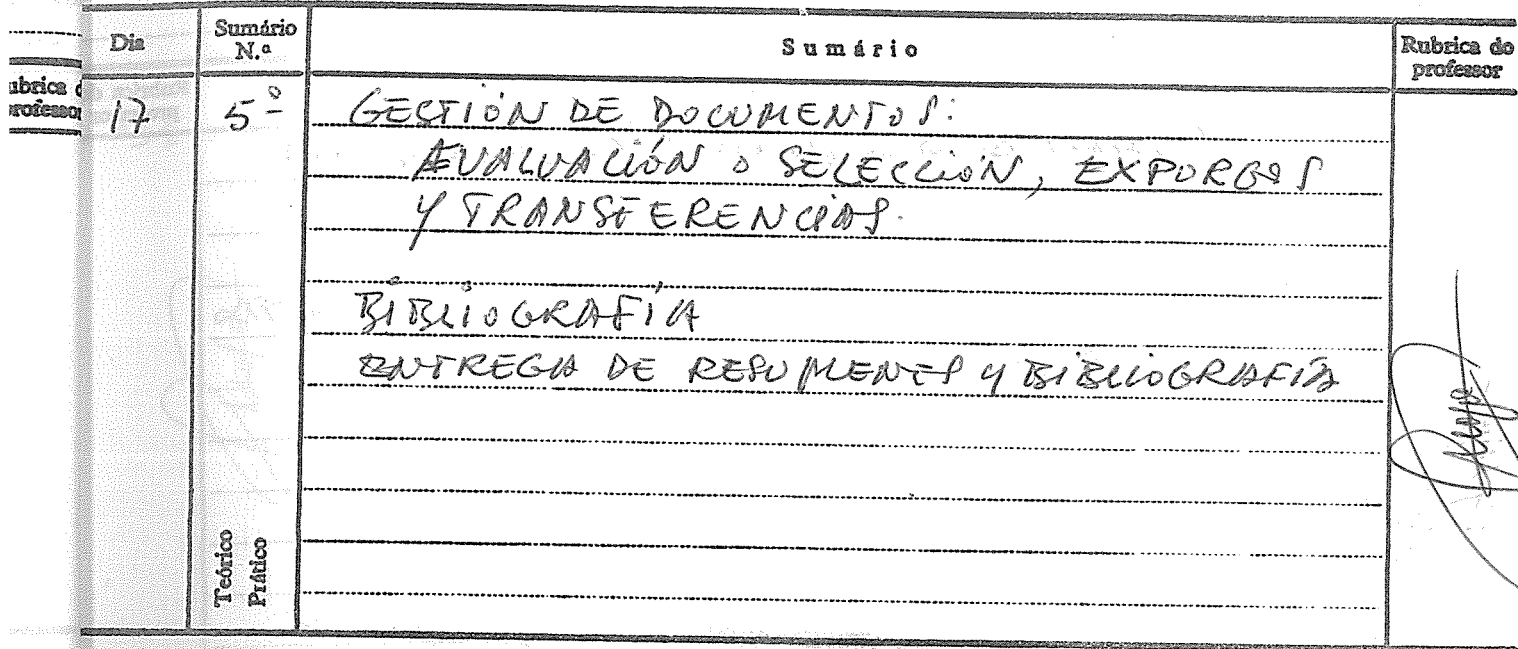 Dia
Sumário
N.º
Sumário
Rubrica do
professor
ubrica d
professor
17
5º
GESTIÓN DE DOCUMENTOS:
EVALUACIÓN O SELECCIÓN, EXPURGOS
Y TRANSFERENCIAS.
BIBLIOGRAFÍA
ENTREGA DE RESUMENES Y BIBLIOGRAFÍA
Teórico
Prático